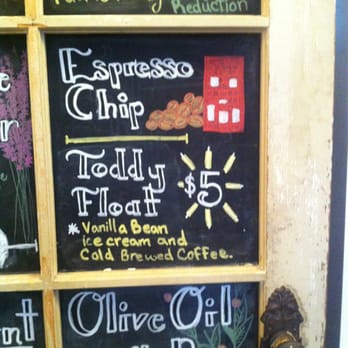 Reduction
Espresso
Chip
Toddy
Float
$5
* Vanilla Bean
ice cream and
Cold Brewed Coffee.
Olive Oil